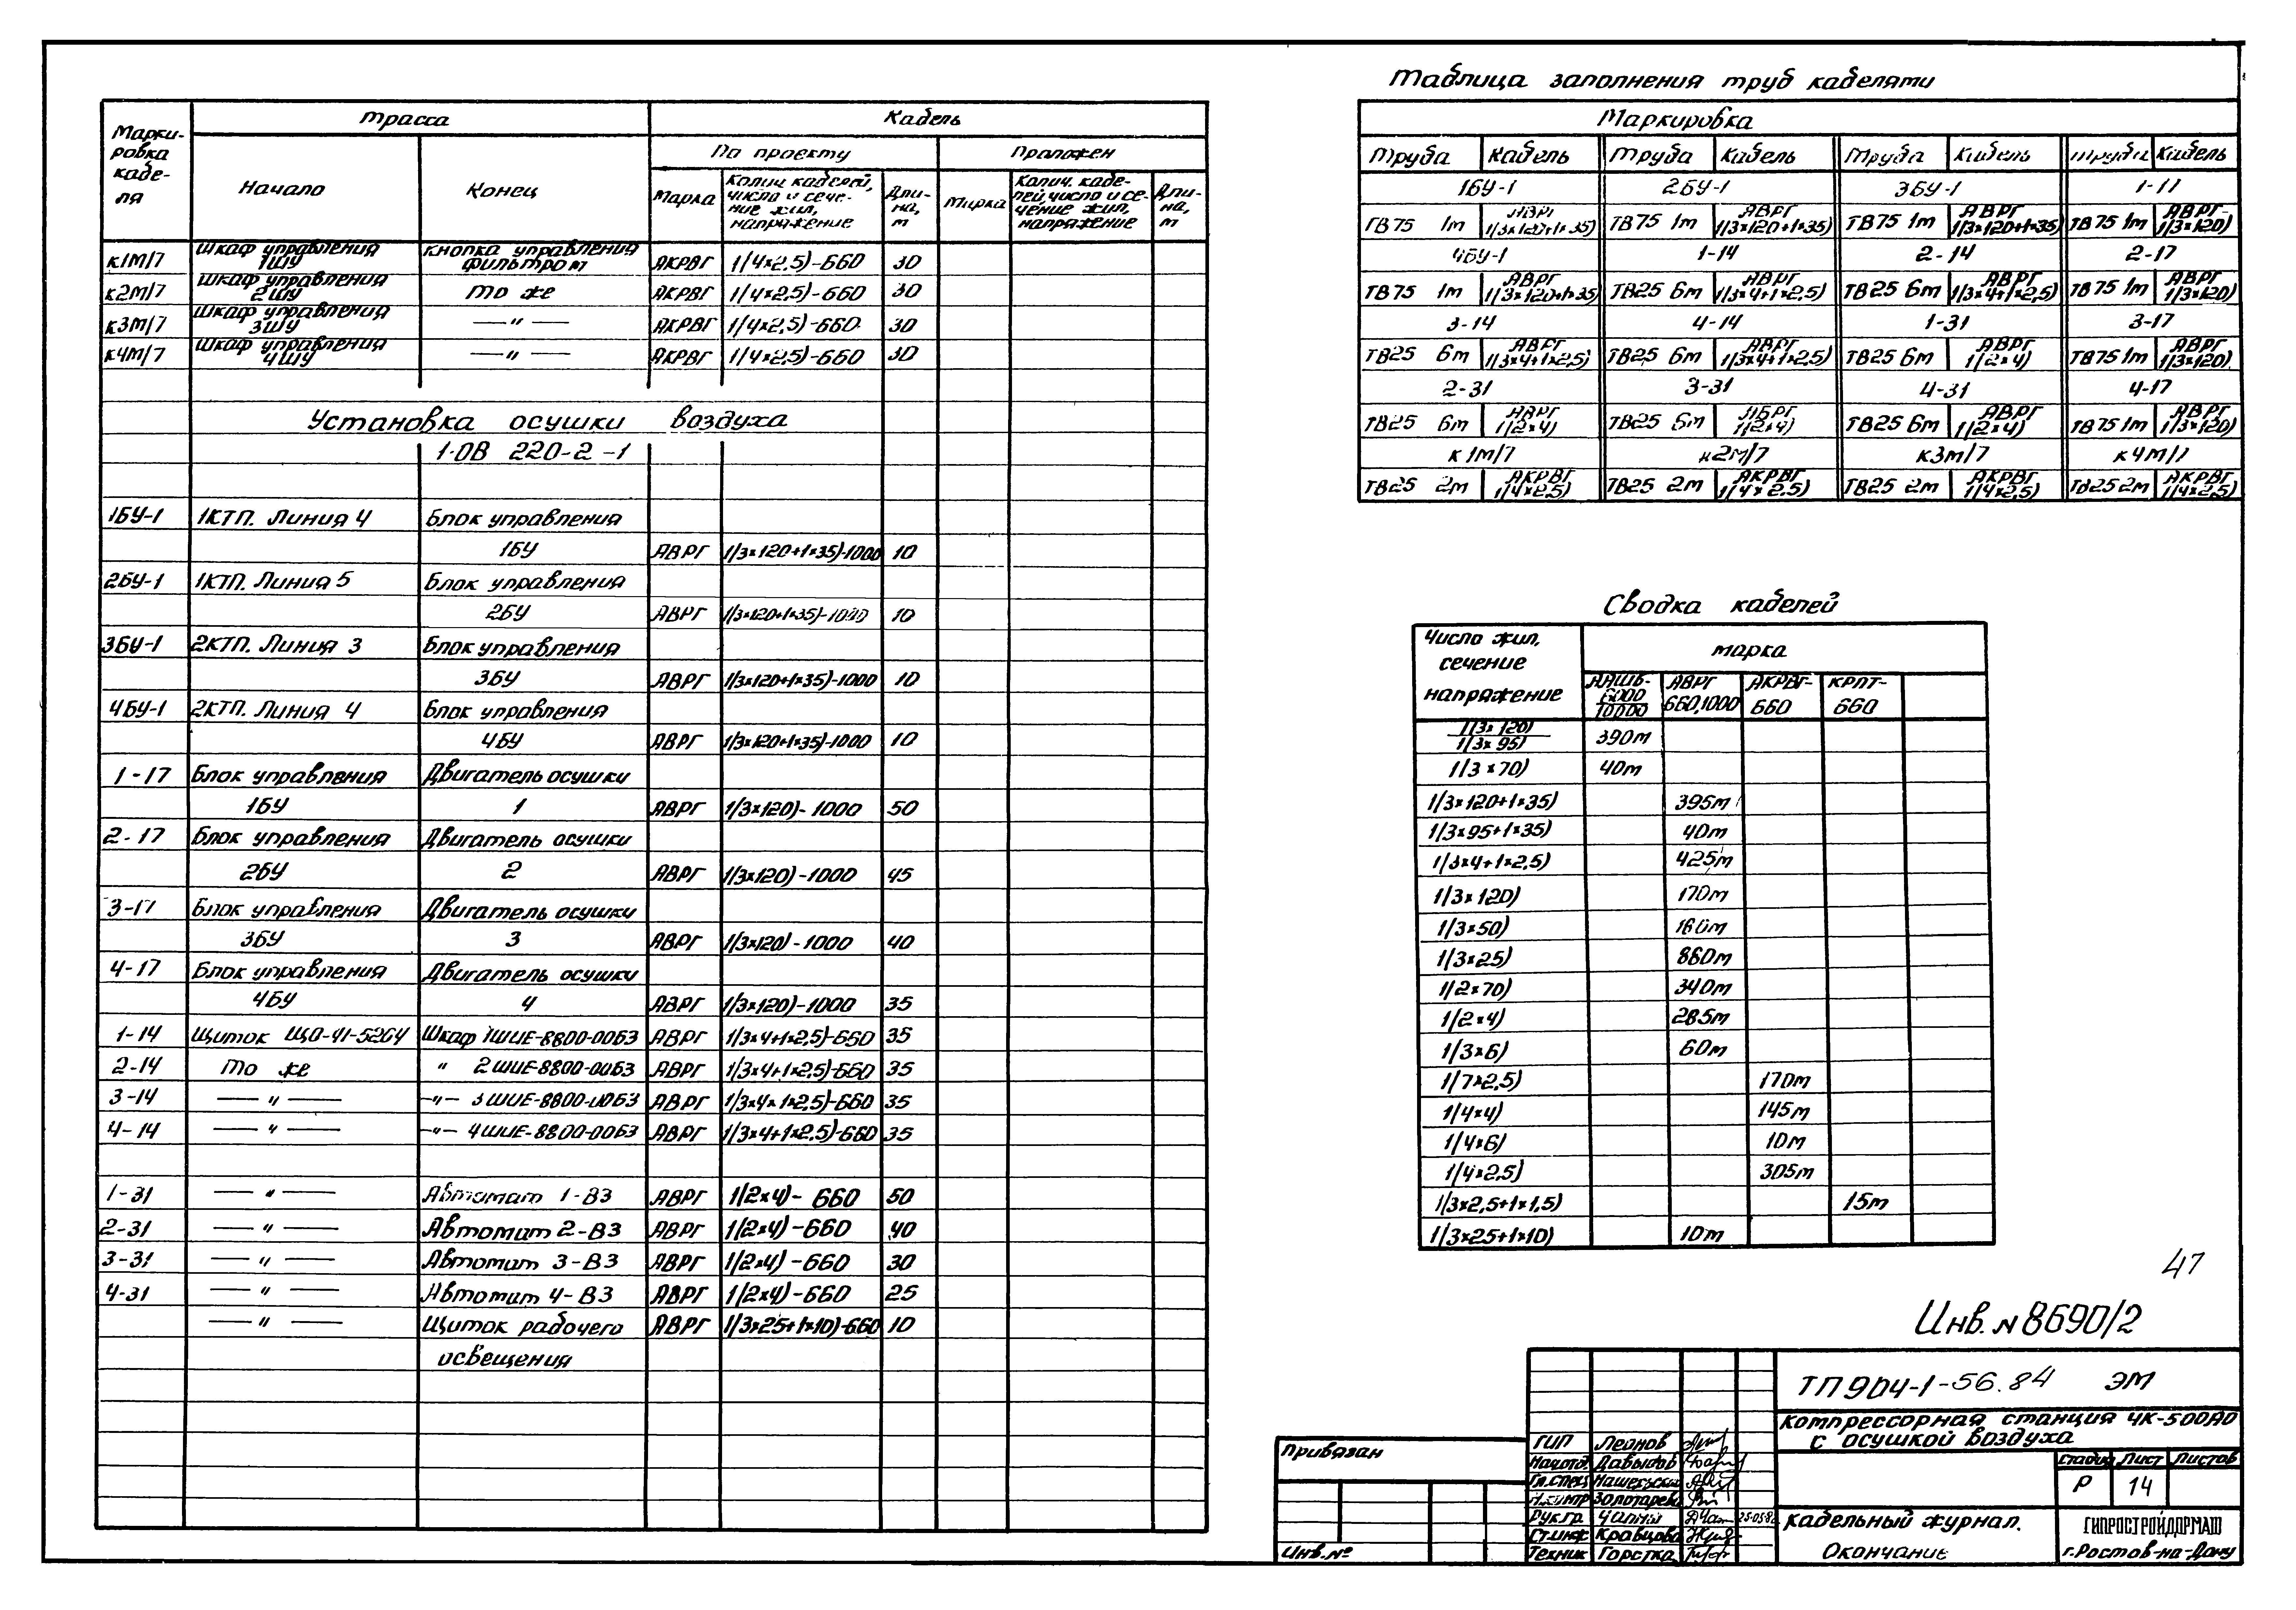 Марки-
ровка
кабе-
ля
трасса
Кабель
Начало
Конец
По проекту
Проложен
Марка
Колич. кабелей,
число и сече-
ние жил,
напряжение
Дли-
на,
м
Марка
Колич. кабе-
лей, число и се-
чение жил,
напряжение
Дли-
на,
м
к1м/7 Шкаф управления 1ШУ кнопка управления фильтром АКРВГ 1/(4×2,5)-660 30
к2м/7 Шкаф управления 2ШУ то же АКРВГ 1/(4×2,5)-660 30
к3м/7 Шкаф управления 3ШУ —"— АКРВГ 1/(4×2,5)-660 30
к4м/7 Шкаф управления 4ШУ —"— АКРВГ 1/(4×2,5)-660 30
Установка осушки воздуха
1-ОВ 220-2-1
1БУ-1 1КТП. Линия 4 Блок управления
1БУ АВРГ 1/(3×120+1×35)-1000 10
2БУ-1 1КТП. Линия 5 Блок управления
2БУ АВРГ 1/(3×120+1×35)-1000 10
3БУ-1 2КТП. Линия 3 Блок управления
3БУ АВРГ 1/(3×120+1×35)-1000 10
4БУ-1 2КТП. Линия 4 Блок управления
4БУ АВРГ 1/(3×120+1×35)-1000 10
1-17 Блок управления Двигатель осушки
1БУ 1 АВРГ 1/(3×120)-1000 50
2-17 Блок управления Двигатель осушки
2БУ 2 АВРГ 1/(3×120)-1000 45
3-17 Блок управления Двигатель осушки
3БУ 3 АВРГ 1/(3×120)-1000 40
4-17 Блок управления Двигатель осушки
4БУ 4 АВРГ 1/(3×120)-1000 35
1-14 Щиток ЩО-41-5204 Шкаф 1ШИЕ-8800-00Б3 АВРГ 1/(3×4+1×2,5)-660 35
2-14 то же " 2ШИЕ-8800-00Б3 АВРГ 1/(3×4+1×2,5)-660 35
3-14 —"— —"— 3ШИЕ-8800-00Б3 АВРГ 1/(3×4×1×2,5)-660 35
4-14 —"— —"— 4ШИЕ-8800-00Б3 АВРГ 1/(3×4+1×2,5)-660 35
1-31 —"— Автомат 1-В3 АВРГ 1/(2×4)-660 50
2-31 —"— Автомат 2-В3 АВРГ 1/(2×4)-660 40
3-31 —"— Автомат 3-В3 АВРГ 1/(2×4)-660 30
4-31 —"— Автомат 4-В3 АВРГ 1/(2×4)-660 25
—"— Щиток рабочего АВРГ 1/(3×25+1×10)-660 10
освещения
Таблица заполнения труб кабелями
Маркировка
Труба Кабель Труба Кабель Труба Кабель Труба Кабель
1БУ-1 2БУ-1 3БУ-1 1-17
ТВ75 1м АВРГ 1/(3×120+1×35) ТВ75 1м АВРГ 1/(3×120+1×35) ТВ75 1м АВРГ 1/(3×120+1×35) ТВ75 1м АВРГ 1/(3×120)
4БУ-1 1-14 2-14 2-17
ТВ75 1м АВРГ 1/(3×120+1×35) ТВ25 6м АВРГ 1/(3×4+1×2,5) ТВ25 6м АВРГ 1/(3×4+1×2,5) ТВ75 1м АВРГ 1/(3×120)
3-14 4-14 1-31 3-17
ТВ25 6м АВРГ 1/(3×4+1×2,5) ТВ25 6м АВРГ 1/(3×4+1×2,5) ТВ25 6м АВРГ 1/(2×4) ТВ75 1м АВРГ 1/(3×120)
2-31 3-31 4-31 4-17
ТВ25 6м АВРГ 1/(2×4) ТВ25 6м АВРГ 1/(2×4) ТВ25 6м АВРГ 1/(2×4) ТВ75 1м АВРГ 1/(3×120)
к1м/7 к2м/7 к3м/7 к4м/7
ТВ25 2м АКРВГ 1/(4×2,5) ТВ25 2м АКРВГ 1/(4×2,5) ТВ25 2м АКРВГ 1/(4×2,5) ТВ25 2м АКРВГ 1/(4×2,5)
Сводка кабелей
Число жил,
сечение
напряжение
марка
ААШВ-
6000
10000
АВРГ
660,1000
АКРВГ-
660
КРПТ-
660
1/(3×120)
1/(3×95) 390м
1/(3×70) 40м
1/(3×120+1×35) 395м
1/(3×95+1×35) 40м
1/(3×4+1×2,5) 425м
1/(3×120) 170м
1/(3×50) 160м
1/(3×25) 880м
1/(2×70) 340м
1/(2×4) 285м
1/(3×6) 60м
1/(7×2,5) 170м
1/(4×4) 145м
1/(4×6) 10м
1/(4×2,5) 305м
1/(3×2,5+1×1,5) 15м
1/(3×25+1×10) 10м
47
Инв. № 8690/2
ТП 904-1-56.84 ЭМ
Компрессорная станция 4К-500АО
с осушкой воздуха
Стадия Лист Листов
Р 14
Кабельный журнал.
Окончание
ГИПРОСТРОЙДОРМАШ
г.Ростов-на-Дону
ГИП Леонов
Нач.отд. Давыдов
Гл.спец.
Н.контр. Золотарева
Рук.гр.
Ст.инж Кравцова
Техник Горстка
Привязан
Инв.№